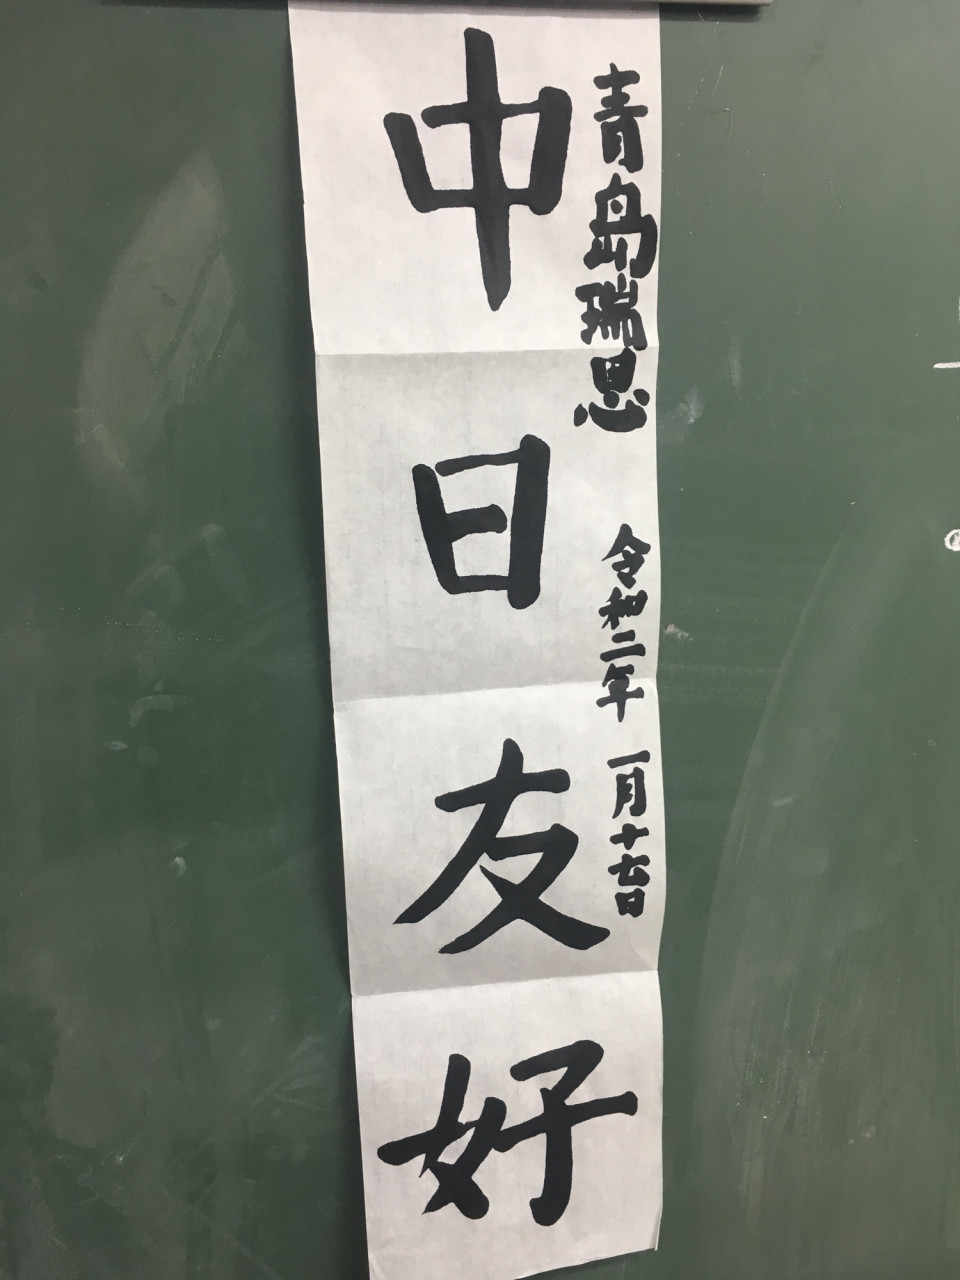 青島瑞思　令和二年　一月十七日
中日友好